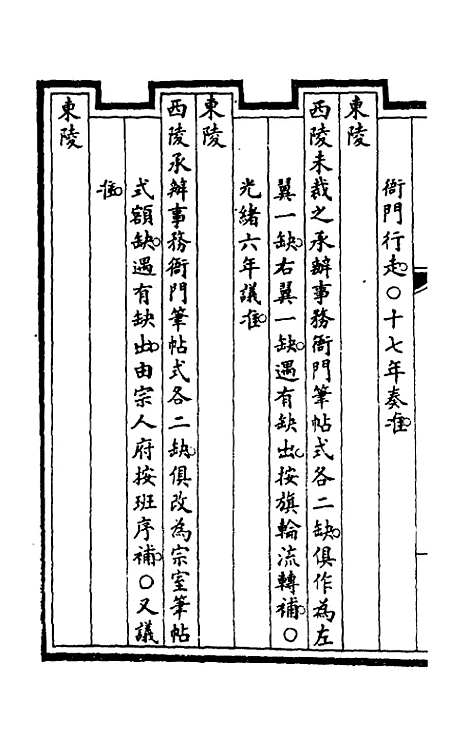 衙門行走。○十七年奏准。
東陵
西陵未裁之承辦事務衙門筆帖式各二缺。俱作為左
翼一缺。右翼一缺。遇有缺出。按旗輪流轉補。○
光緒六年議准。
東陵
西陵承辦事務衙門筆帖式各二缺。俱改為宗室筆帖
式額缺。遇有缺出。由宗人府按班序補。○又議
准。
東陵